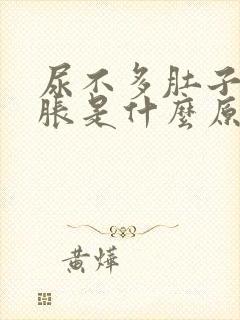 尿不多肚子
脹是什麼原
黃燁